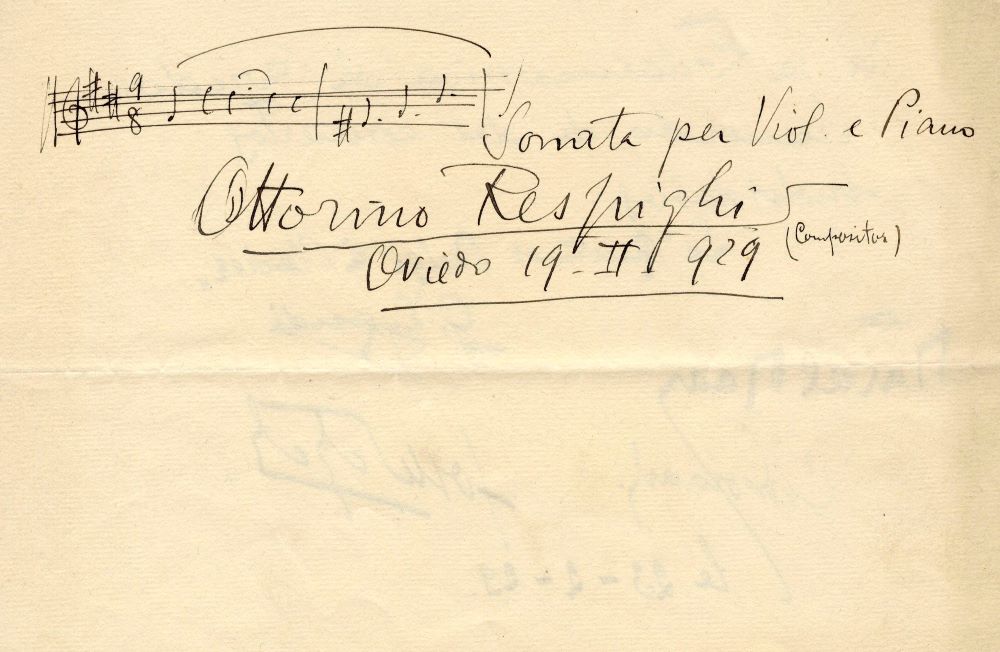 9
8
Sonata per Viol. e Piano
Ottorino Respighi
(Compositor)
Oviedo 19-II 929
le 23-2-29